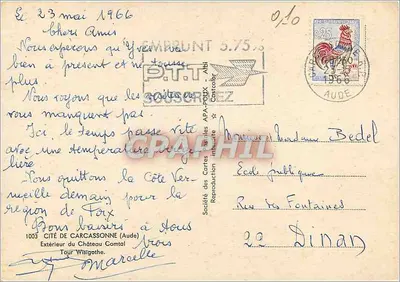 Le 23 mai 1966
Chers Amis
Nous espérons qu'Yves va
bien à présent et ne tousse
plus.
Nous voyons que les
vous manquent pas.
Ici, le temps passe vite
avec une température
lière.
Nous quittons la Côte Ver-
meille demain pour la
région de Foix
Bons baisers à tous
trois
Marcelle
1003 CITÉ DE CARCASSONNE (Aude)
Extérieur du Château Comtal
Tour Wisigothe.
EMPRUNT 5.75%
P.T.T.
SOUSCRIVEZ
0,10
1966
AUDE
CPAPHIL
Société des Cartes Postales APA-POUX Albi
Reproduction interdite
Monsieur Madame Bedel
École publique
Rue des Fontaines
22 Dinan